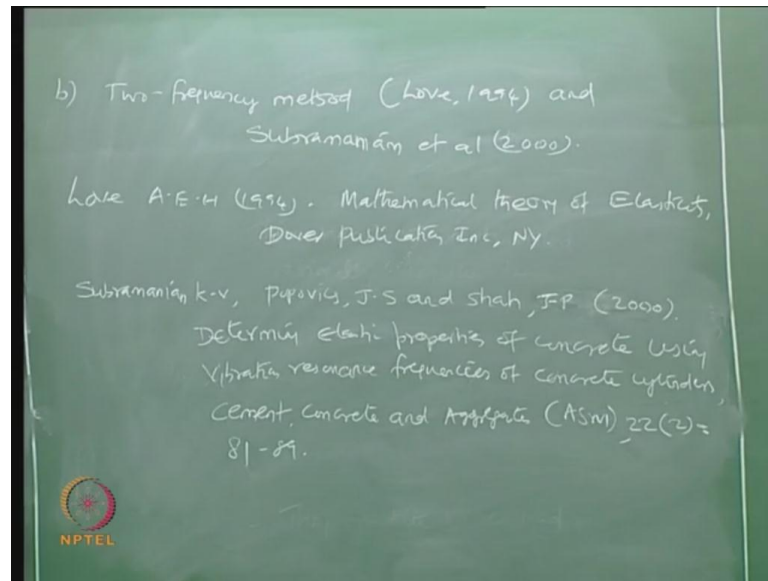 b) Two-frequency method (Love, 1994) and
Subramanian et al (2000).
Love A.E.H (1994). Mathematical theory of Elasticity,
Dover Publication Inc, NY.
Subramanian K.V, Popovics, J.S and Shah, J.P (2000).
Determing elastic properties of concrete using
Vibration resonance frequencies of concrete cylinders,
Cement, Concrete and Aggregates (ASM), 22(2)=
81-89.
NPTEL